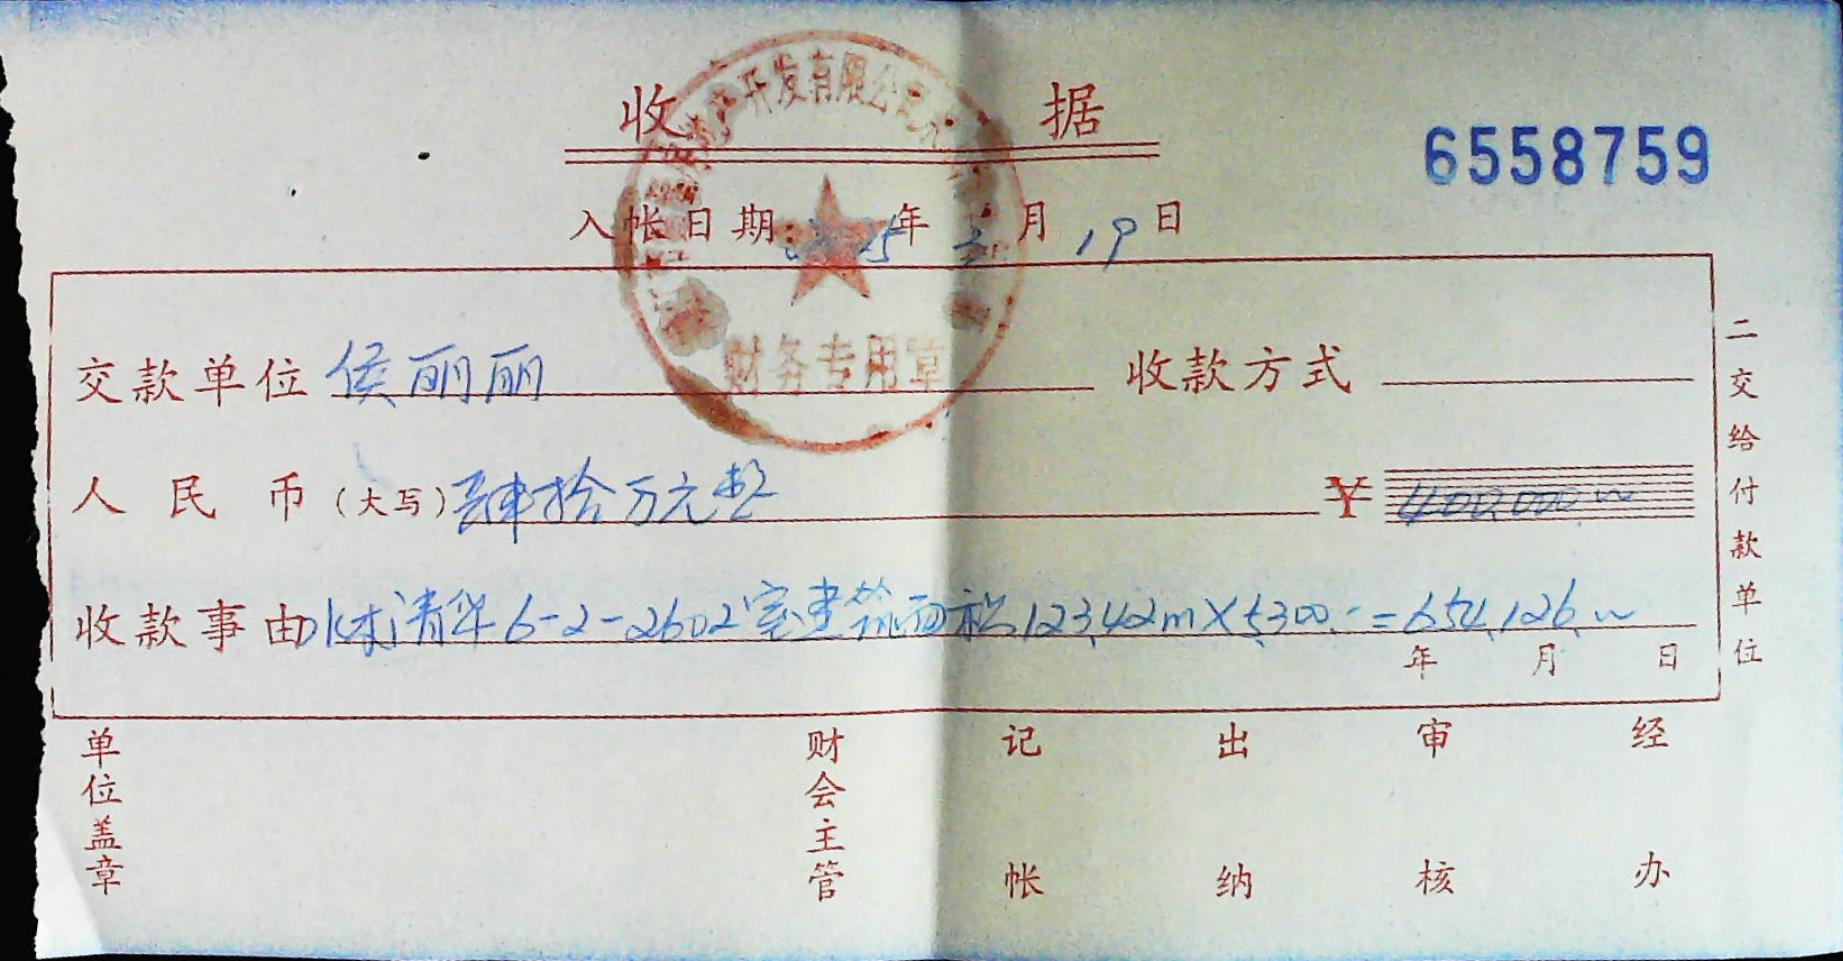 收据
6558759
房产开发有限公司
财务专用章
入帐日期: 年 月 19 日
交款单位 侯丽丽 收款方式
人民币(大写) 肆拾万元整 ¥ 400,000
收款事由 水木清华6-2-2602室建筑面积123.42m×5300.-=654,126.
年 月 日
二交给付款单位
单位盖章 财会主管 记帐 出纳 审核 经办